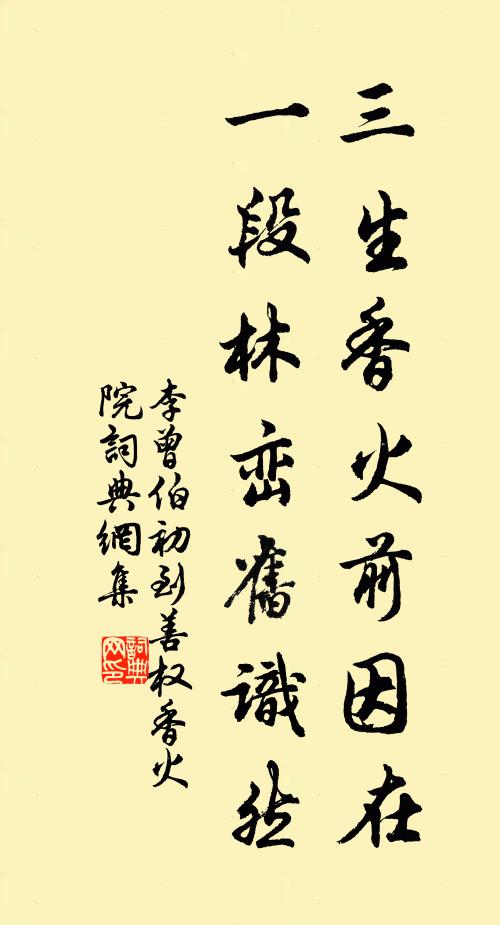 三生香火前因在
一段林峦舊識然
李曾伯初到善权香火
院詞典網集
詞典网印